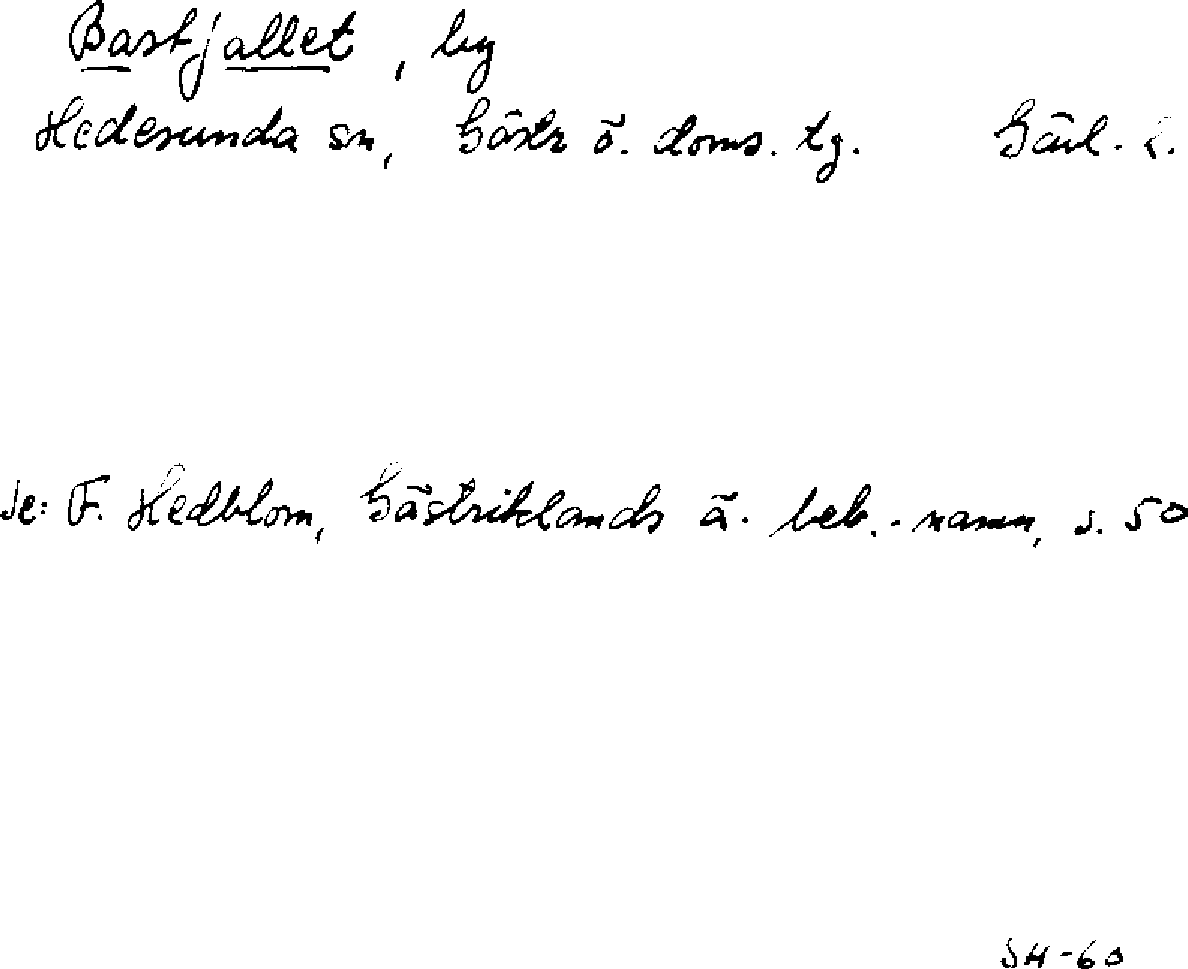 Bastjallet, by
Hedesunda sn, Gästr ö. doms. tg. Gävl. L.
Se: F. Hedblom, Gästriklands ä. beb.-namn, s. 50
SH-60